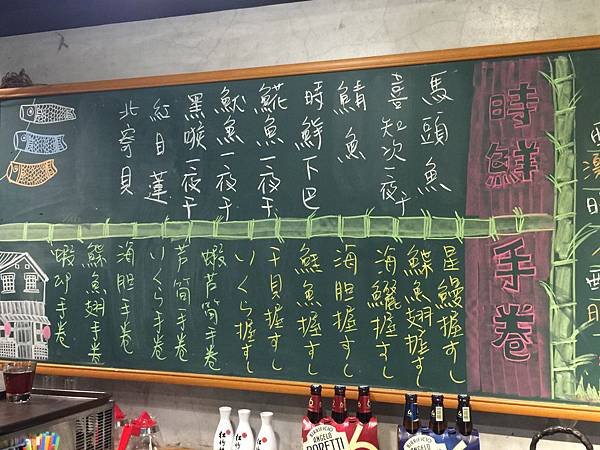 時鮮
手卷
馬頭魚
喜知次一夜干
鯖魚
時鮮下巴
鯡魚一夜干
魷魚一夜干
黑喉一夜干
紅目蓮
北寄貝
星鰻握すし
鰈魚翅握すし
海鱺握すし
海胆握すし
鮭魚握すし
干貝握すし
いくら握すし
蝦芦筍手卷
芦筍手卷
いくら手卷
海胆手卷
鰈魚翅手卷
蝦卵手卷
BIRRIFICIO
ANGELO
PORETTI
BIRRIFICIO
ANGELO